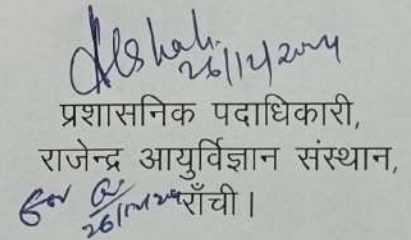 26/12/2024
प्रशासनिक पदाधिकारी,
राजेन्द्र आयुर्विज्ञान संस्थान,
राँची।